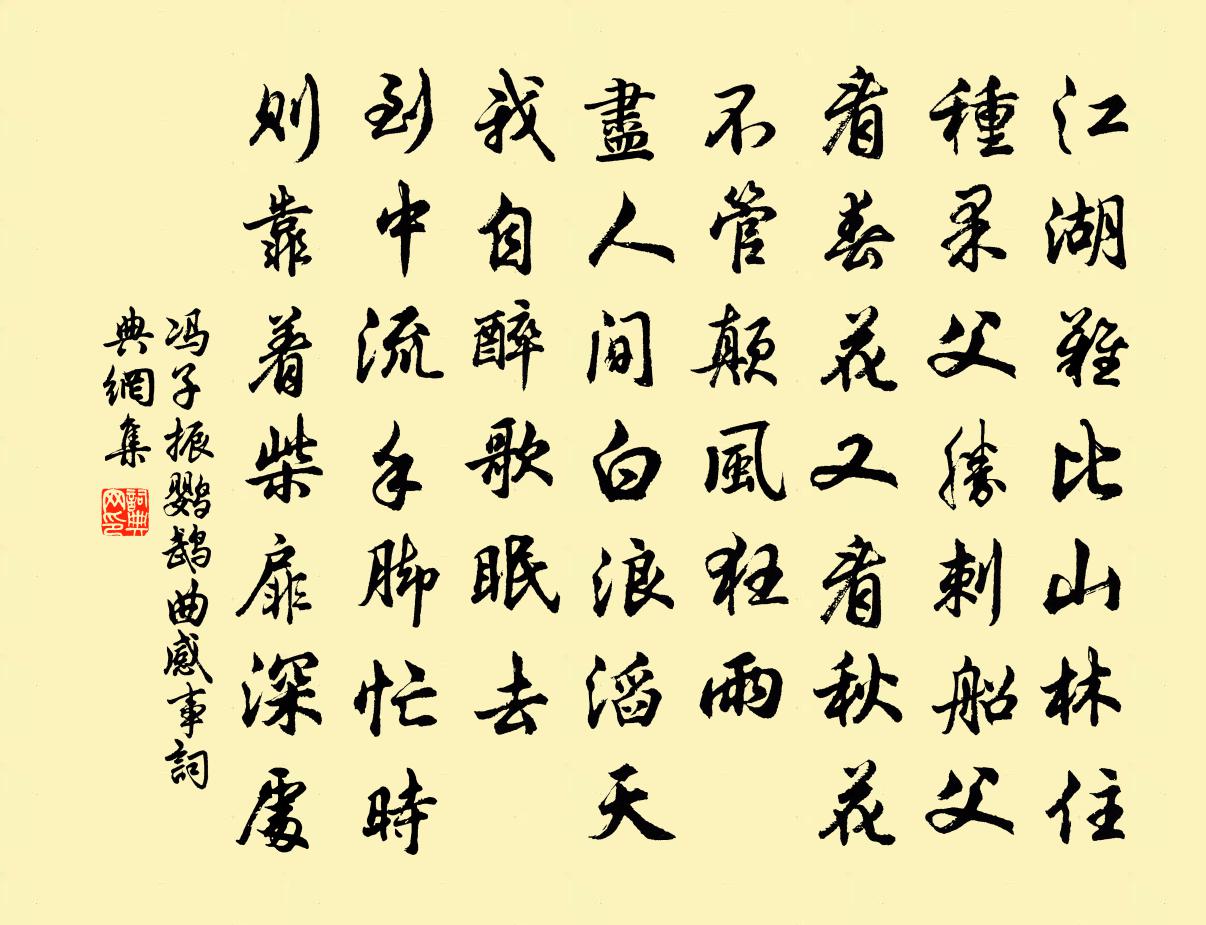 江湖難比山林住
種果父勝刺船父
看春花又看秋花
不管顛風狂雨
盡人間白浪滔天
我自醉歌眠去
到中流手脚忙時
則靠着柴扉深處
冯子振鹦鹉曲感事詞
典網集
詞典
网印